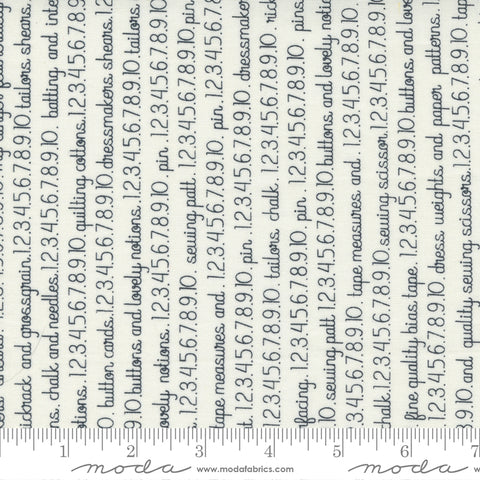 rickrack and grossgrain.1.2.3.4.5.6.7.8.9.10. tailors shears.
ns. chalk and needles.1.2.3.4.5.6.7.8.9.10. batting. and inte
tions. 1.2.3.4.5.6.7.8.9.10. quilting cottons.1.2.3.4.5.6.7.8.9.10.
0. button cards.1.2.3.4.5.6.7.8.9.10. dressmakers shears.1.2
9.10. buttons and lovely notions.1.2.3.4.5.6.7.8.9.10. tailors.
ovely notions. 1.2.3.4.5.6.7.8.9.10. pin. 1.2.3.4.5.6.7.8.9.10.
1.2.3.4.5.6.7.8.9.10. sewing patt. 1.2.3.4.5.6.7.8.9.10. pin.
tape measures. and. 1.2.3.4.5.6.7.8.9.10. pin. 1.2.3.4.5.6.7.8.9.10.
t. 1.2.3.4.5.6.7.8.9.10. pin. 1.2.3.4.5.6.7.8.9.10. dressmaker
1.2.3.4.5.6.7.8.9.10. tailors. chalk. 1.2.3.4.5.6.7.8.9.10. rick
rfacing. 1.2.3.4.5.6.7.8.9.10. pin. 1.2.3.4.5.6.7.8.9.10. pins.
10. sewing patt 1.2.3.4.5.6.7.8.9.10. buttons. and lovely notions
.3.4.5.6.7.8.9.10. tape measures. and. 1.2.3.4.5.6.7.8.9.10.
chalk.1.2.3.4.5.6.7.8.9.10. sewing scissor.1.2.3.4.5.6.7.8.9.10.
fine quality bias tape. 1.2.3.4.5.6.7.8.9.10. buttons. and lov
1.2.3.4.5.6.7.8.9.10. dress. weights. and paper patterns. 1.
3.9.10. and quality sewing scissors. 1.2.3.4.5.6.7.8.9.10. tap
1 2 3 4 5 6 7
moda www.modafabrics.com moda